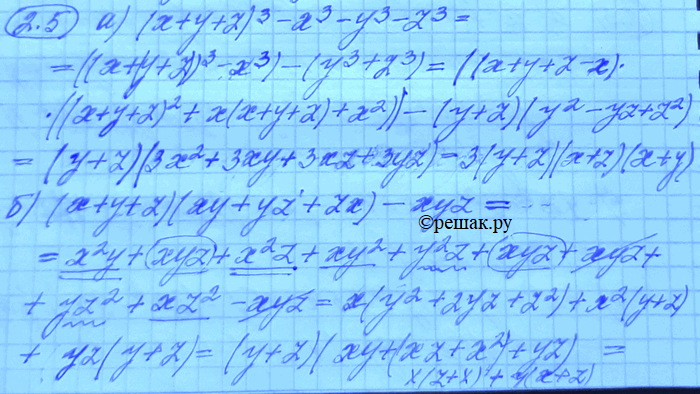 2.5 а) (x+y+z)³ - x³ - y³ - z³ =
= ((x+(y+z))³ - x³) - (y³ + z³) = ((x+y+z-x)·
·((x+y+z)² + x(x+y+z) + x²)) - (y+z)(y² - yz + z²)
= (y+z)(3x² + 3xy + 3xz + 3yz) = 3(y+z)(x+z)(x+y)
б) (x+y+z)(xy + yz + zx) - xyz = ...
©решак.ру
= x²y + xyz + x²z + xy² + y²z + xyz + xyz +
+ yz² + xz² - xyz = x(y² + 2yz + z²) + x²(y+z)
+ yz(y+z) = (y+z)(xy + (xz + x²) + yz) =
x(z+x) + y(x+z)